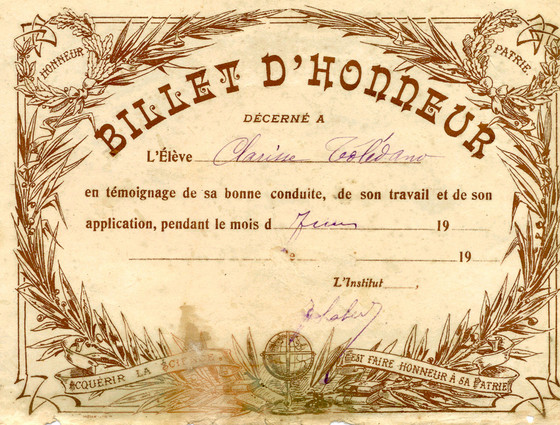 HONNEUR
PATRIE
BILLET D'HONNEUR
DÉCERNÉ A
L'Élève Clarisse Tolédano
en témoignage de sa bonne conduite, de son travail et de son
application, pendant le mois d Juin 19
19
L'Institut ,
ACQUÉRIR LA SCIENCE
C'EST FAIRE HONNEUR À SA PATRIE